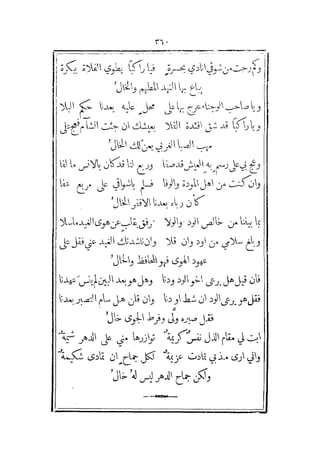 ٣٦٠
وكم رحت من شوقي انادي بحسرةٍ فيا راكبًا يطوي الفلاة ببكرة
يباع بها النهد المطهم والخالُ
ويا صاحب الوجناء عرج بها على محلٍ عليه بعدنا حكم البلا
ويا راكبًا قد شق افئدة الفلا بعيشك ان جئت الشآم فعج على
مهب الصبا الغربي يعن لك الخالُ
وعج بي على رسمٍ به العيش قد صفا وربع لنا قد كان بالانس ما لفا
وان كنت من اهل المودة والوفا فسلم باشواقي على مربع عفا
كأن رباه بعدنا الاقفر الخالُ
بما بيننا من خالص الود والولا ترفق بقلب عن هوى الغيد ما سلا
وبلغ سلامي من اود وان قلا وان ناشدتك الغيد عني فقل على
عهود الهوى فهو المحافظ والخالُ
فان قيل هل يرعى اخو الود ودنا وهل هو بعد البين لم ينس عهدنا
فقل هو يرعى الود ان شط او دنا وان قلن هل سام التصبر بعدنا
فقل صبره ولَّى وفرط الجوى خالُ
ابت لي مقام الذل نفسٌ كريمةٌ توازرها مني على الدهر شيمةٌ
واني ارى مذ بي تمادت عزيمةٌ لكل جماحٍ ان تمادى شكيمةٌ
ولكن جماح الدهر ليس لهُ خالُ